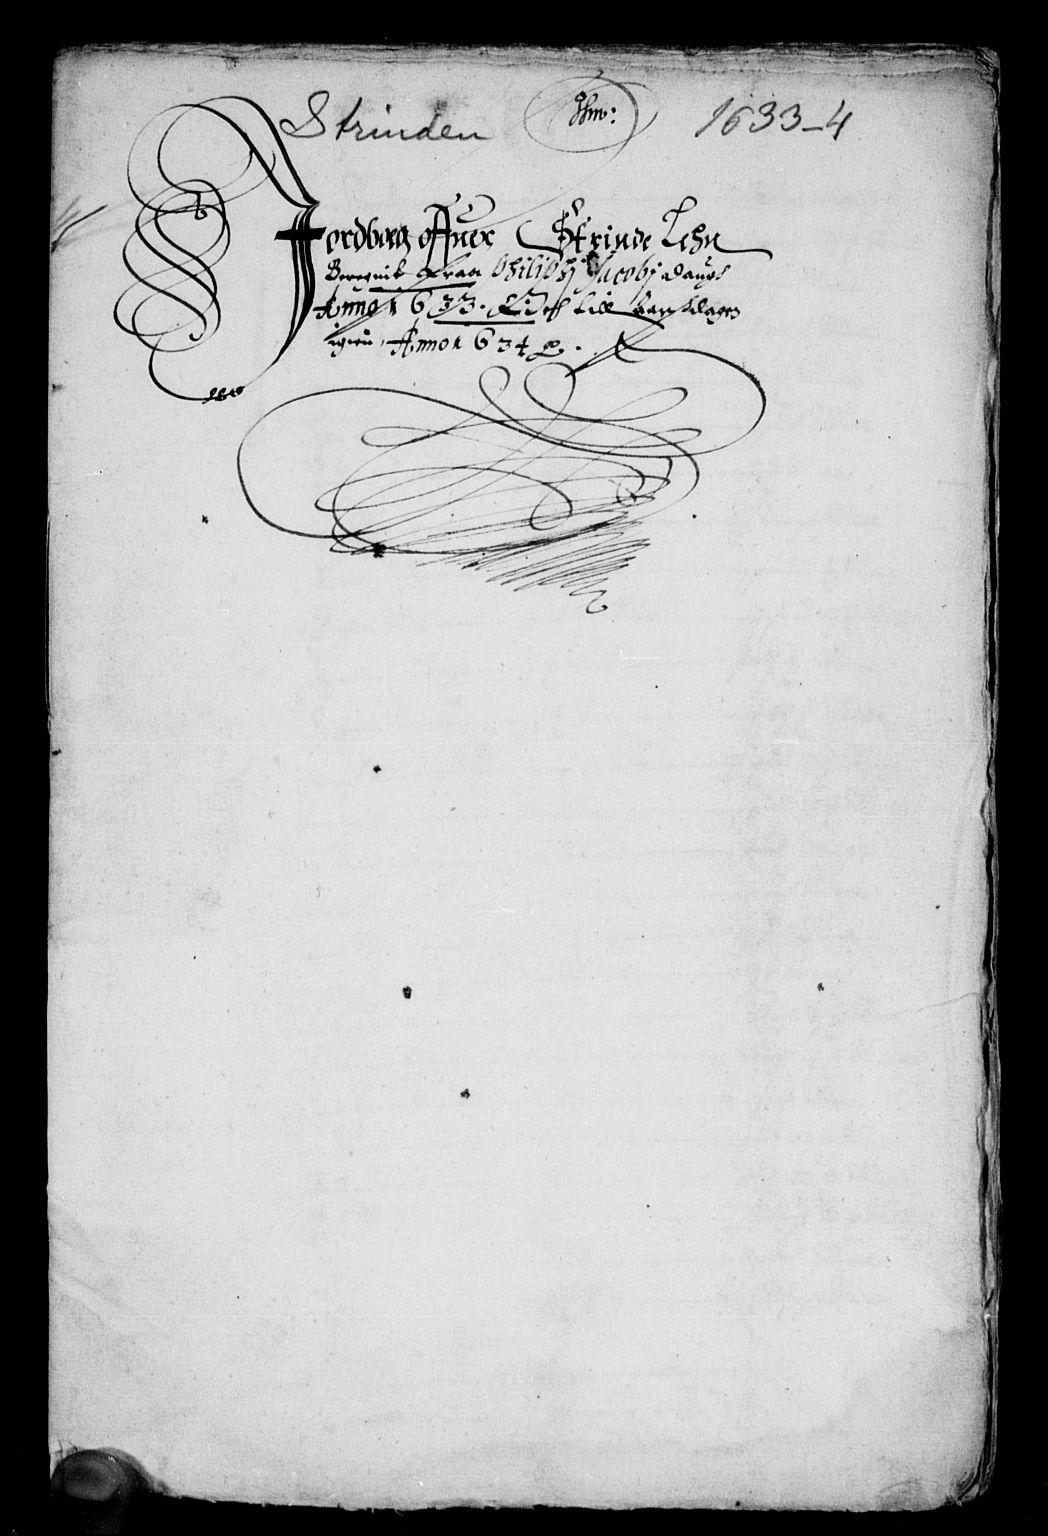 Strinden 1633-4
Jordbog offuer Strinde Lehn
Beregnit Fraa Philiphi Jacobj Daugh
Anno 1633. Och till samme dagen
igien, Anno 1634